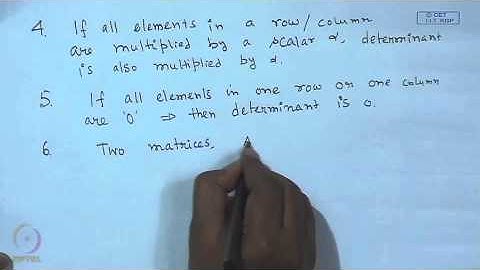 4. If all elements in a row/column
are multiplied by a scalar α, determinant
is also multiplied by α.
5. If all elements in one row or one column
are '0' ⇒ then determinant is 0.
6. Two matrices, A
© CET
I.I.T. KGP
NPTEL